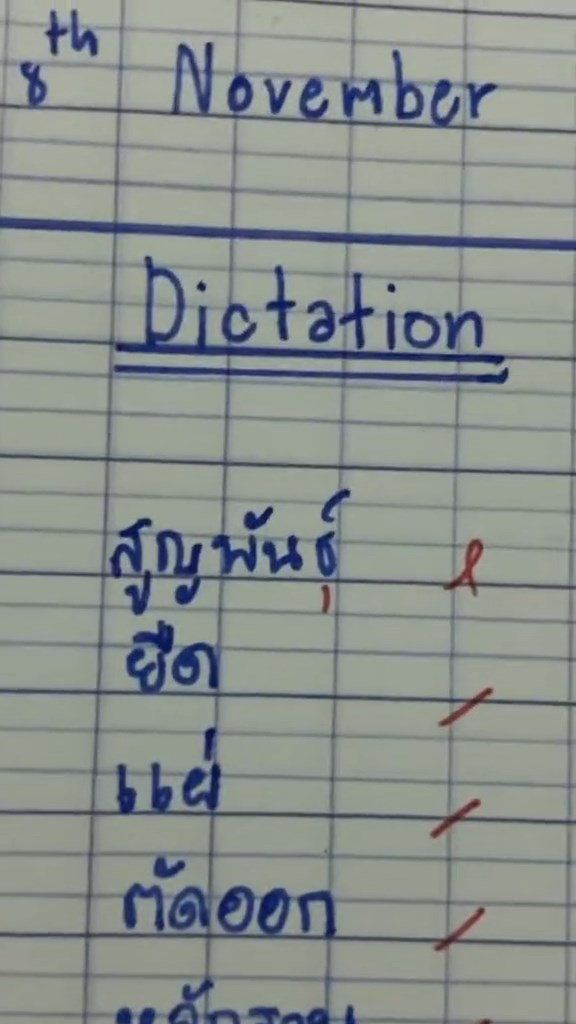 8th November
Dictation
สูญพันธุ์
ยืด
แย่
ตัดออก